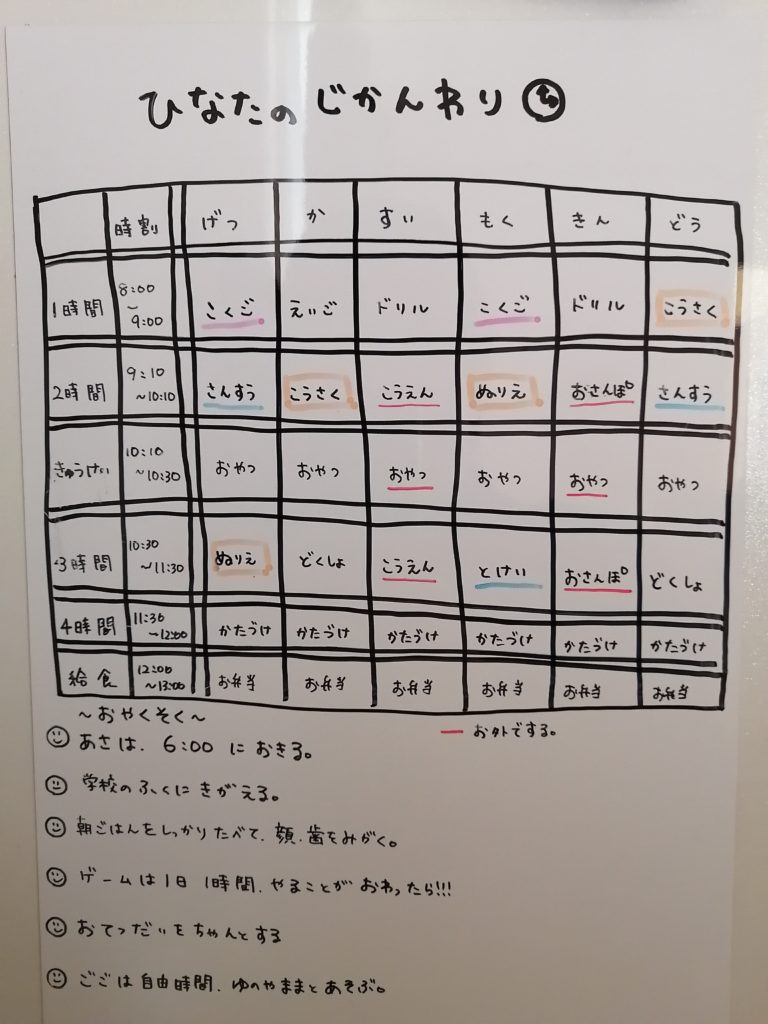 ひなたの じかんわり
時割 げつ か すい もく きん どう
1時間 8:00〜9:00 こくご えいご ドリル こくご ドリル こうさく
2時間 9:10〜10:10 さんすう こうさく こうえん ぬりえ おさんぽ さんすう
きゅうけい 10:10〜10:30 おやつ おやつ おやつ おやつ おやつ おやつ
3時間 10:30〜11:30 ぬりえ どくしょ こうえん とけい おさんぽ どくしょ
4時間 11:30〜12:00 かたづけ かたづけ かたづけ かたづけ かたづけ かたづけ
給食 12:00〜13:00 お弁当 お弁当 お弁当 お弁当 お弁当 お弁当
〜おやくそく〜
お外でする。
あさは、6:00 に おきる。
学校のふくに きがえる。
朝ごはんをしっかりたべて、顔、歯をみがく。
ゲームは1日 1時間、やることが おわったら!!!
おてつだいをちゃんとする
ごごは自由時間、ゆのやままとあそぶ。